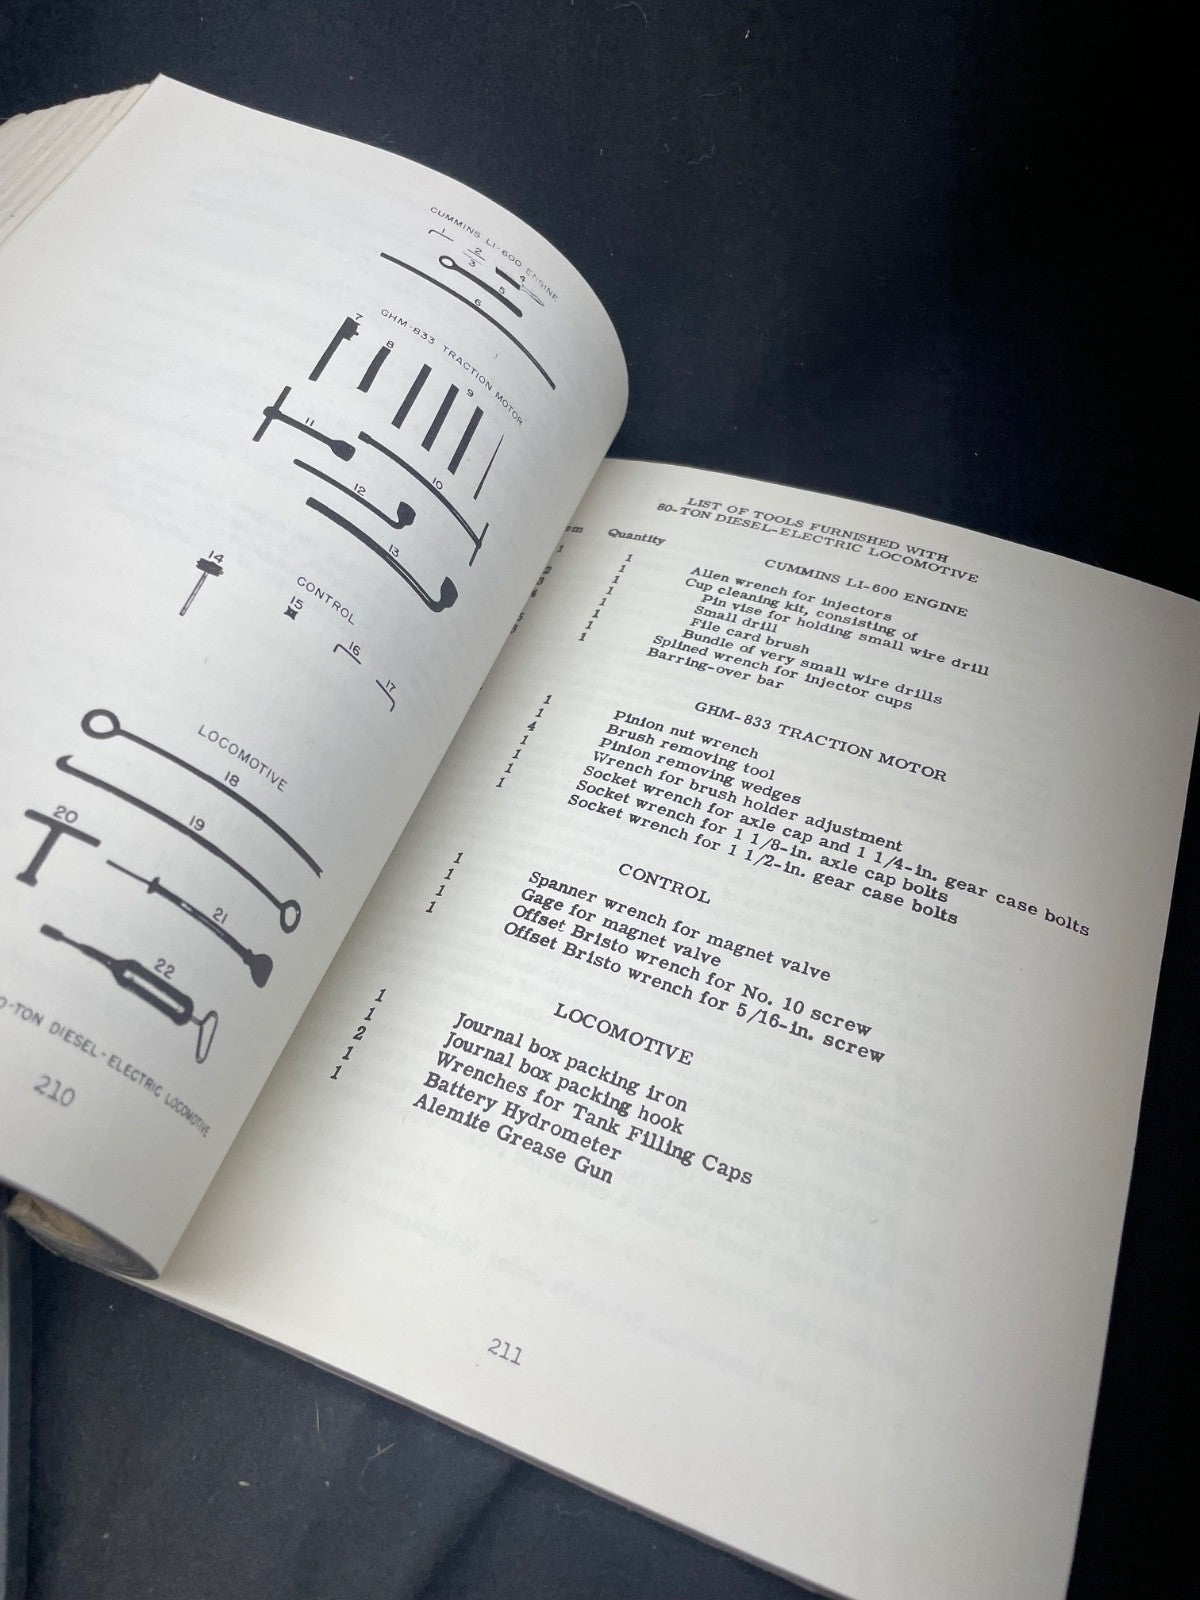 CUMMINS LI-600 ENGINE
1
2
3
4
5
6
GHM-833 TRACTION MOTOR
7
8
9
10
11
12
13
14
CONTROL
15
16
17
LOCOMOTIVE
18
19
20
21
22
0-TON DIESEL-ELECTRIC LOCOMOTIVE
210
LIST OF TOOLS FURNISHED WITH
80-TON DIESEL-ELECTRIC LOCOMOTIVE
em Quantity
CUMMINS LI-600 ENGINE
1 1 Allen wrench for injectors
2 1 Cup cleaning kit, consisting of
1 Pin vise for holding small wire drill
1 Small drill
1 File card brush
1 Bundle of very small wire drills
1 Splined wrench for injector cups
Barring-over bar
GHM-833 TRACTION MOTOR
1 Pinion nut wrench
1 Brush removing tool
4 Pinion removing wedges
1 Wrench for brush holder adjustment
1 Socket wrench for axle cap and 1 1/4-in. gear case bolts
1 Socket wrench for 1 1/8-in. axle cap bolts
1 Socket wrench for 1 1/2-in. gear case bolts
CONTROL
1 Spanner wrench for magnet valve
1 Gage for magnet valve
1 Offset Bristo wrench for No. 10 screw
1 Offset Bristo wrench for 5/16-in. screw
LOCOMOTIVE
1 Journal box packing iron
1 Journal box packing hook
2 Wrenches for Tank Filling Caps
1 Battery Hydrometer
1 Alemite Grease Gun
211